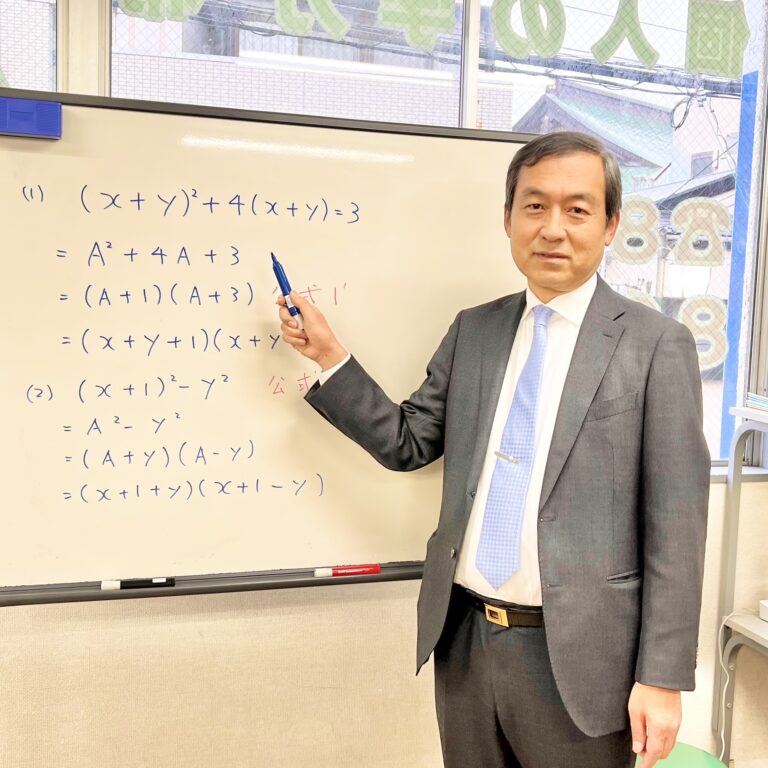 個人の学力
(1) (x+y)²+4(x+y)=3
= A²+4A+3
=(A+1)(A+3) 公式1'
=(x+y+1)(x+y
(2) (x+1)²-y² 公式
= A²-y²
=(A+y)(A-y)
=(x+1+y)(x+1-y)